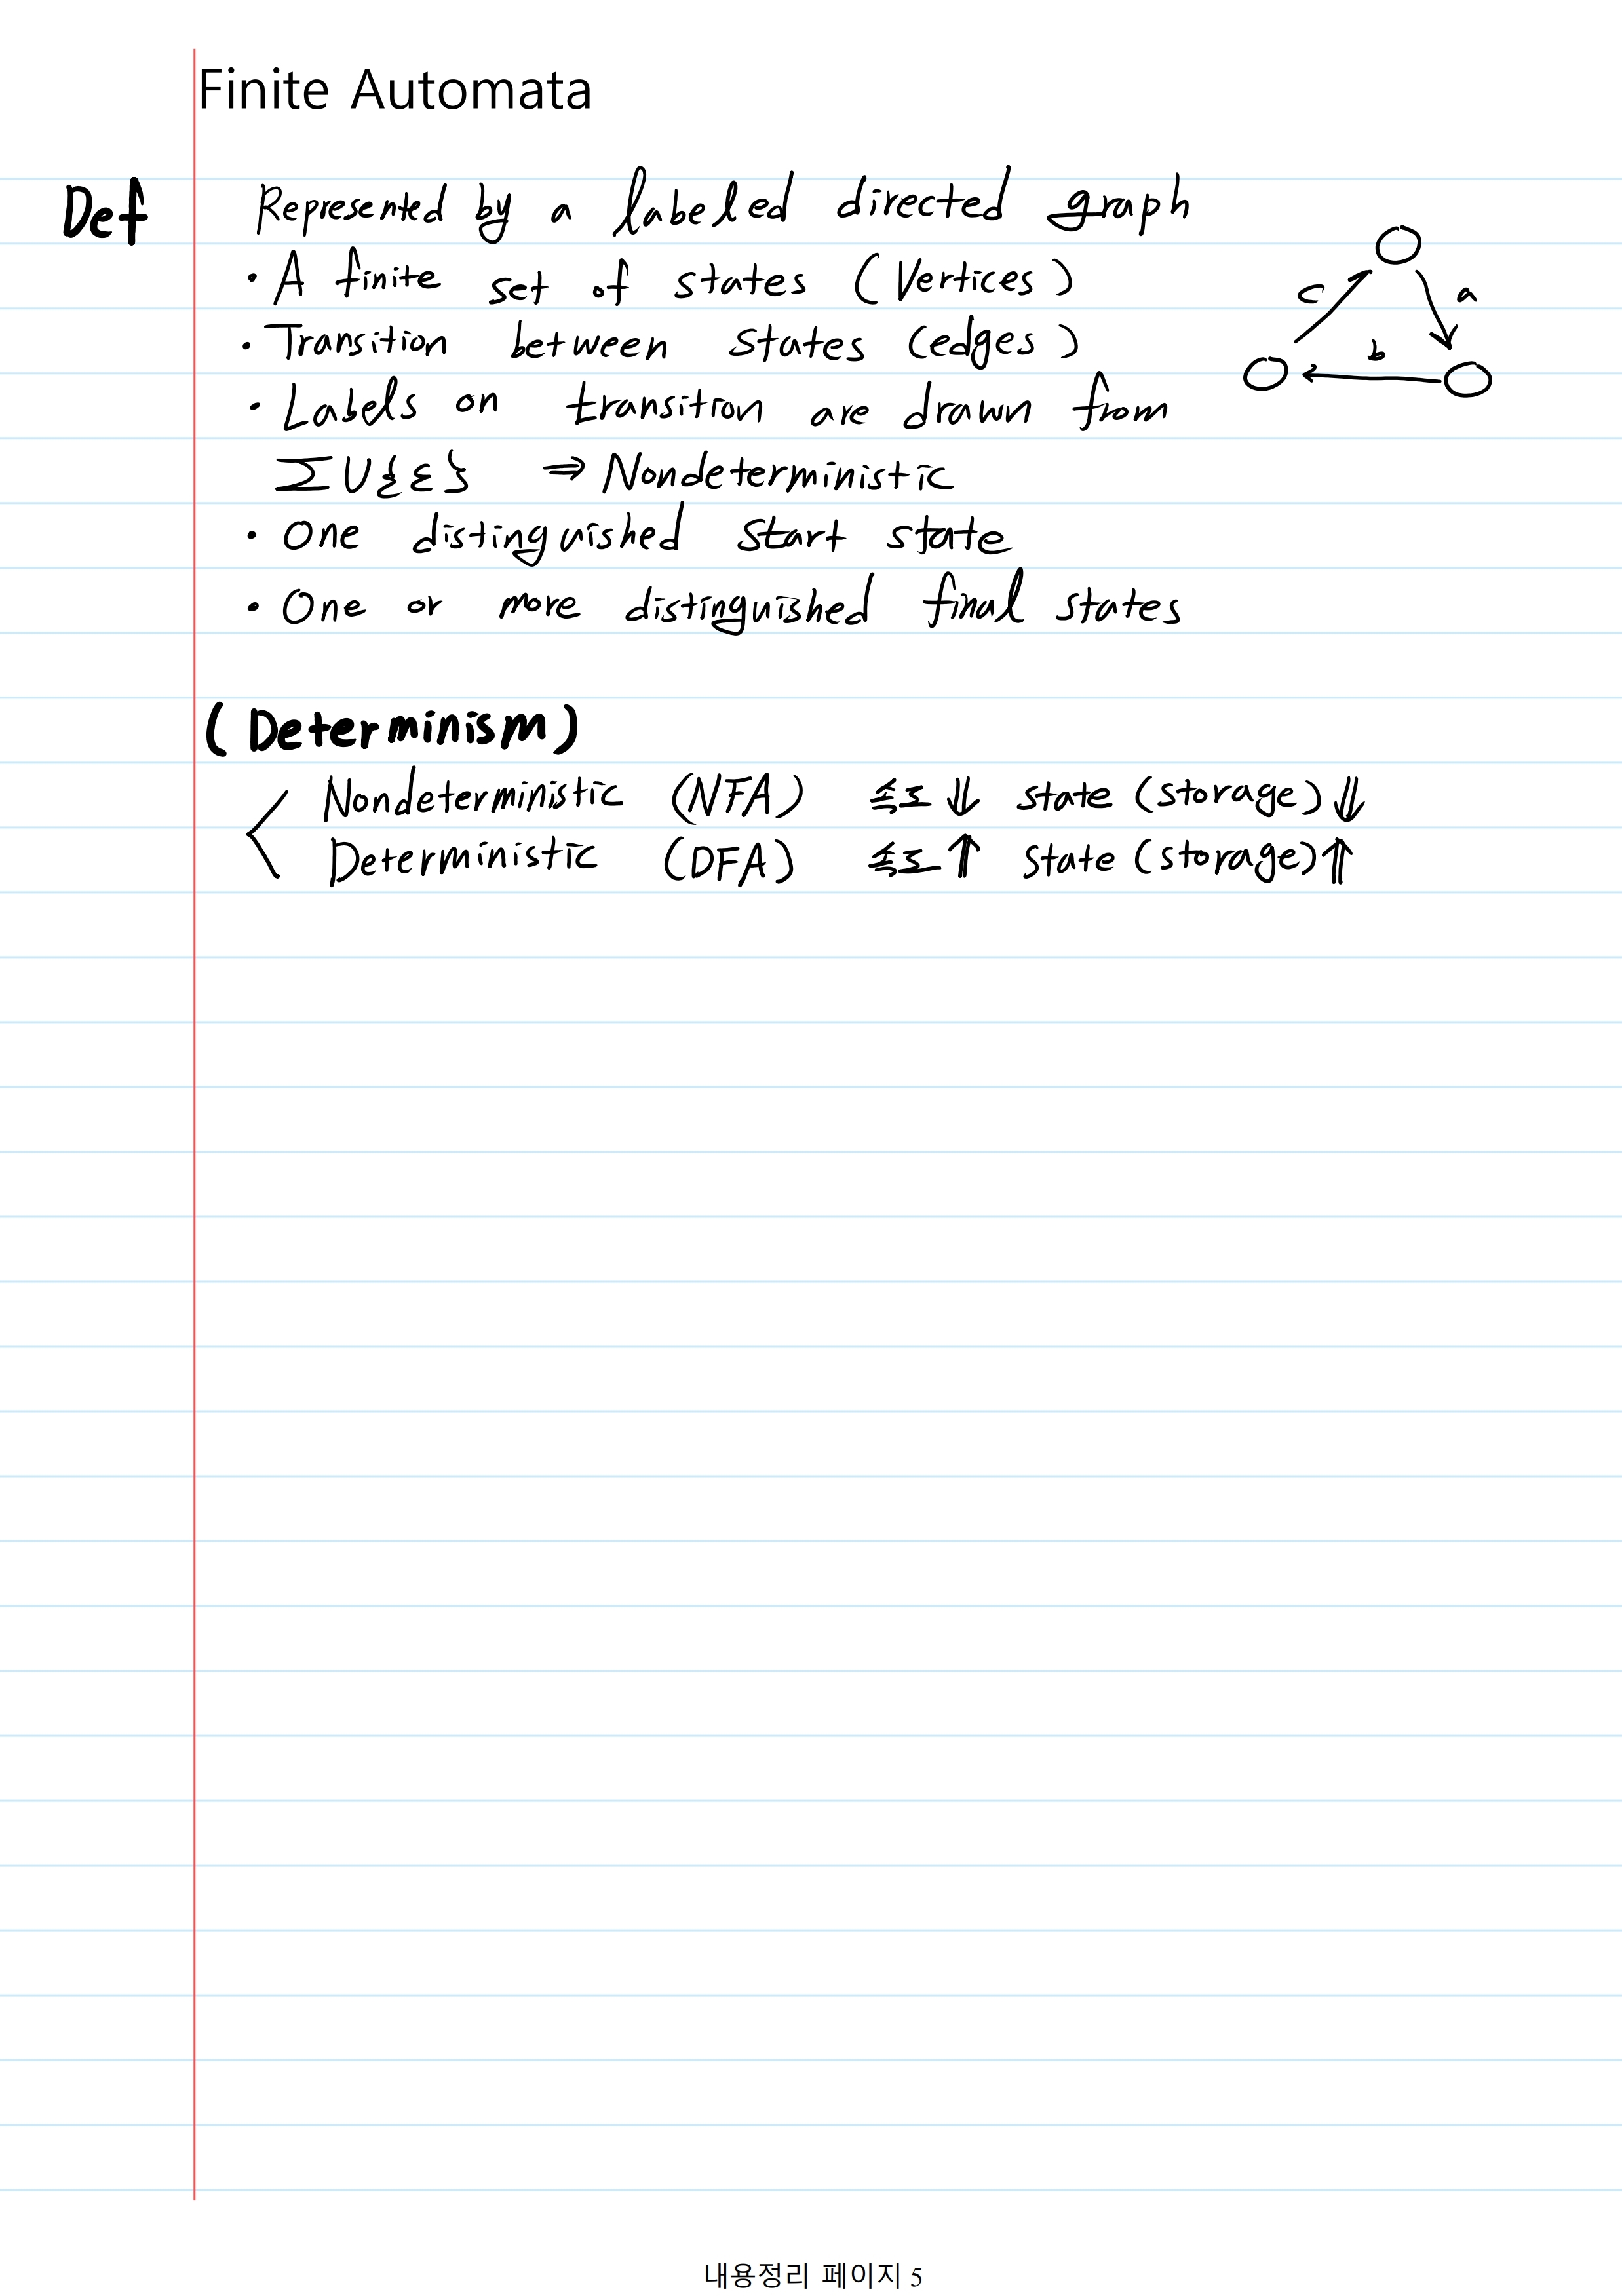 Finite Automata
Def Represented by a labeled directed graph
· A finite set of states (Vertices)
· Transition between states (edges)
· Labels on transition are drawn from
Σ∪{ε} ⇒ Nondeterministic
· One distinguished start state
· One or more distinguished final states
c
a
b
(Determinism)
Nondeterministic (NFA) 속도 ⇓ state (storage) ⇓
Deterministic (DFA) 속도 ⇑ state (storage) ⇑
내용정리 페이지 5